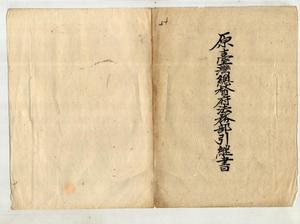 原臺灣總督府法務部引繼書